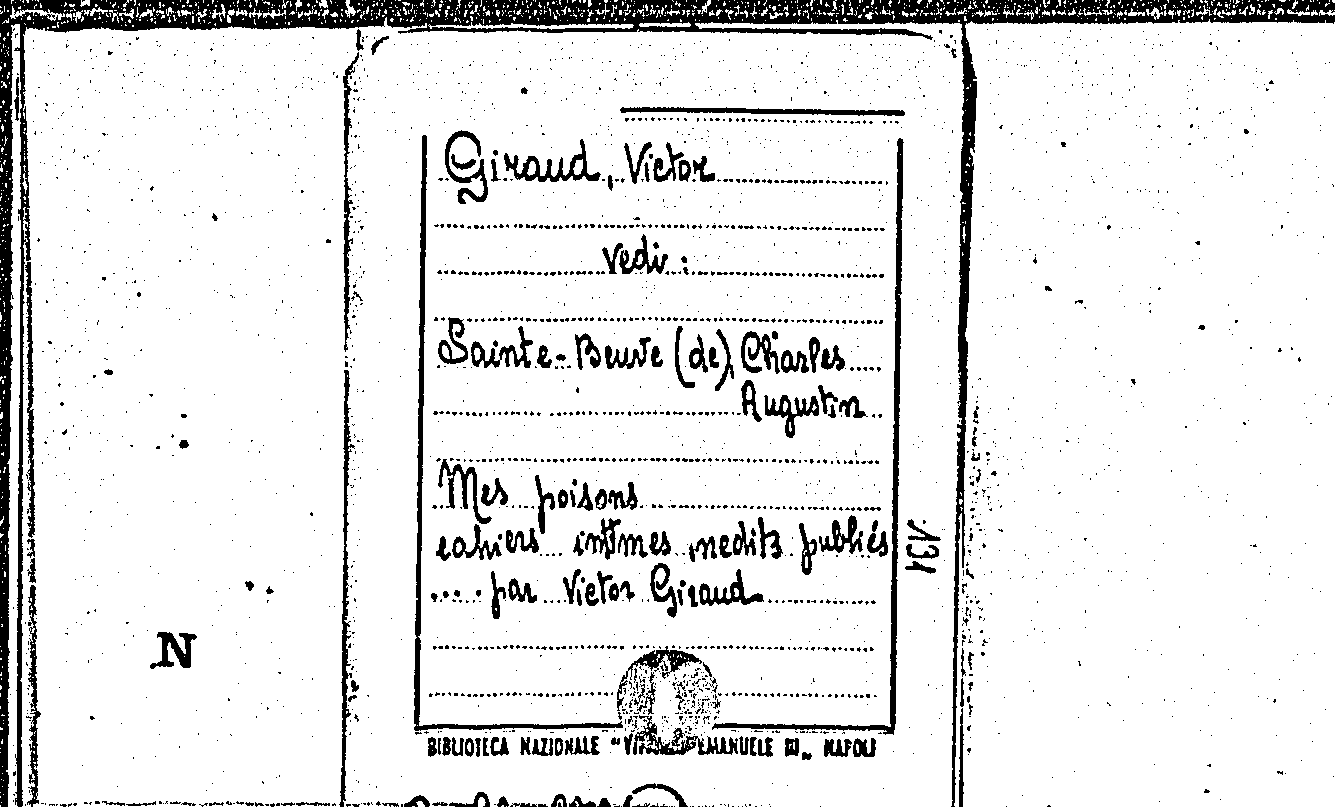 Giraud, Victor
vedi:
Sainte-Beuve (de), Charles
Augustin
Mes poisons
cahiers intimes inedits publiés
.... par Victor Giraud
191
N
BIBLIOTECA NAZIONALE "VITTORIO EMANUELE III„ NAPOLI